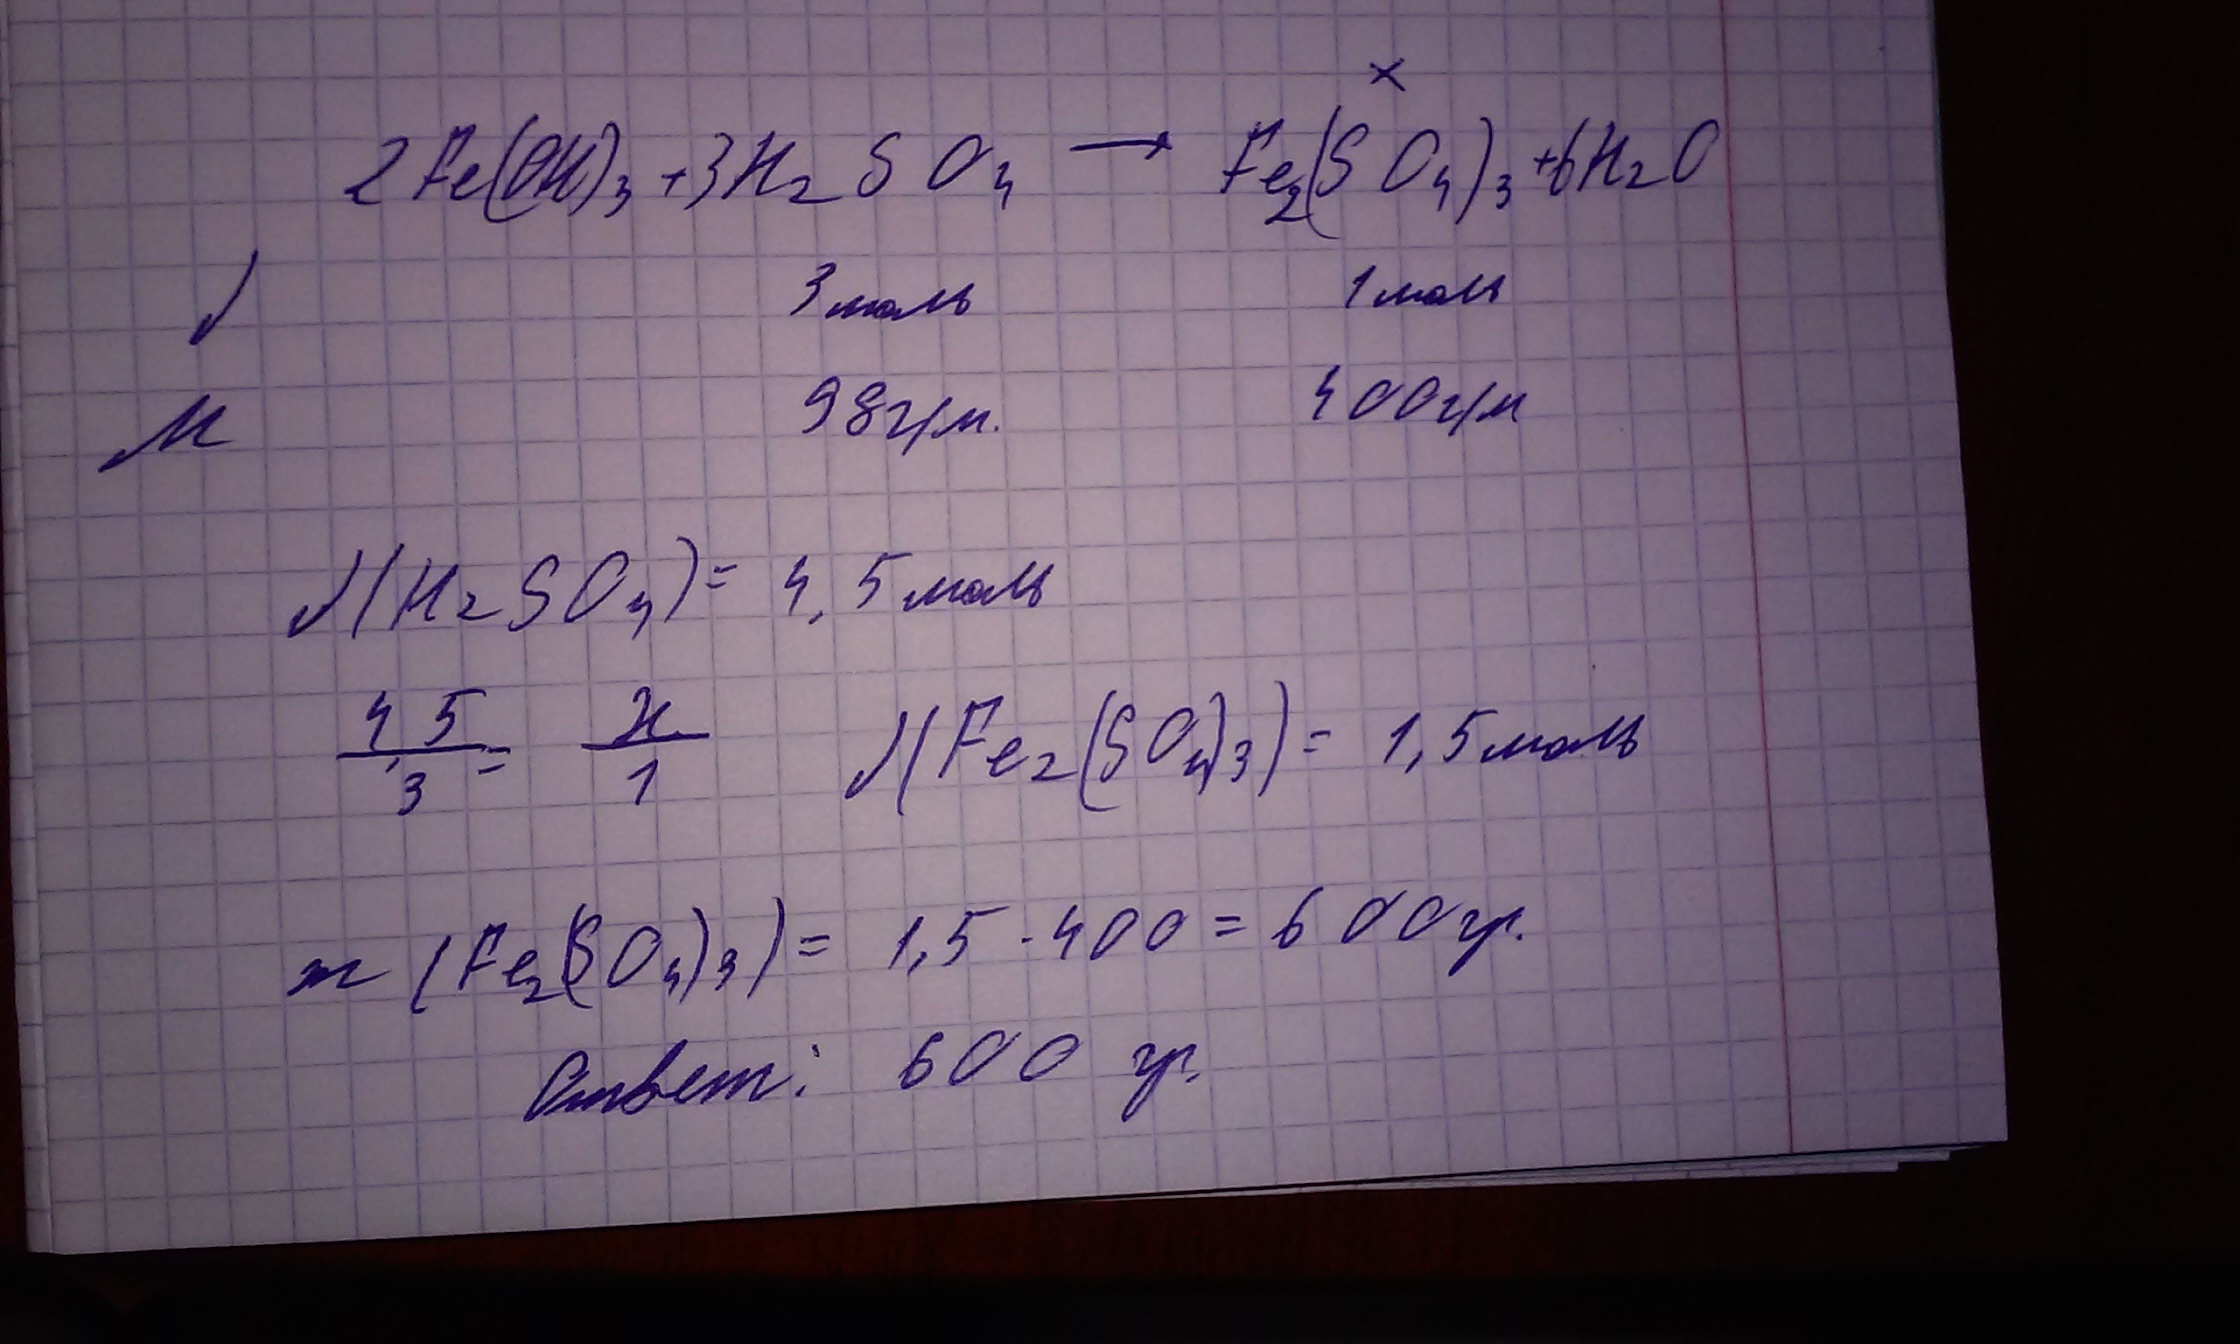 x
2Fe(OH)₃+3H₂SO₄ → Fe₂(SO₄)₃+6H₂O
√ 3моль 1моль
М 98г/м. 400г/м
√(H₂SO₄)= 4,5моль
4,5/3 = x/1 √(Fe₂(SO₄)₃)= 1,5моль
m (Fe₂(SO₄)₃)= 1,5·400=600гр.
Ответ: 600 гр.